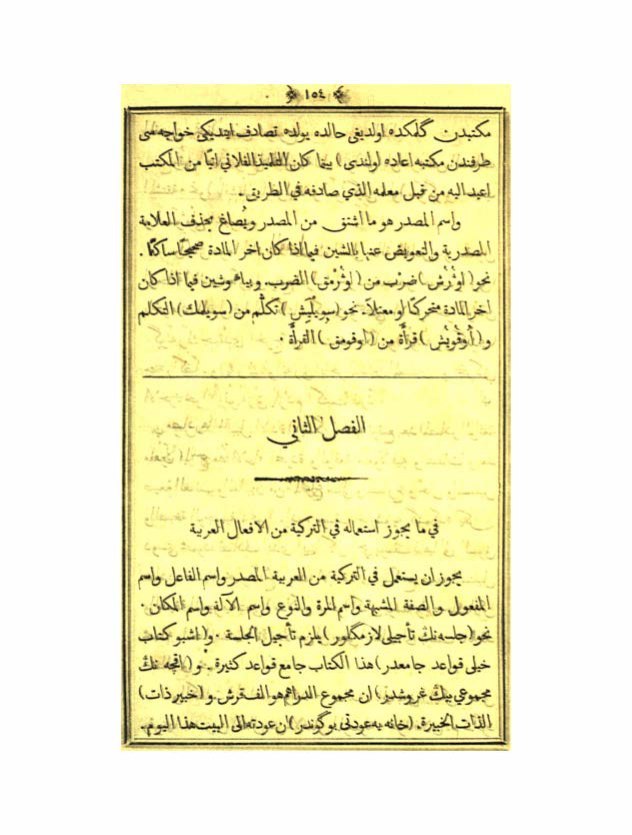 ١٥٤
مكتبدن گلمكده اولديغى حالده يولده تصادف ايتديكى خواجه سى
طرفندن مكتبه اعاده اولندى) بينما كان التلميذ الفلاني اتيًا من المكتب
اعيد اليه من قبل معلمه الذي صادفه في الطريق .
واسم المصدر هو ما اشتق من المصدر ويُصاغ بحذف العلامة
المصدرية والتعويض عنها بالشين فيما اذا كان اخر المادة صحيحًا ساكنًا .
نحو (اوُرُش) ضرْب من (اوُرْمق) الضرب. وبياءٍ وشين فيما اذا كان
اخر المادة متحركًا او معتلاً. نحو (سويلَيِش) تكلّم من (سويلمك) التكلم
و (أُوقُويُش) قرأَة من (اوقومق) القرأَة .
الفصل الثاني
في ما يجوز استعماله في التركية من الافعال العربية
يجوز ان يستعمل في التركية من العربية المصدر واسم الفاعل واسم
المفعول والصفة المشبهة واسم المرة والنوع واسم الآلة واسم المكان .
نحو (جلسه نك تأجيلى لازمگلور) يلزم تأجيل الجلسة . و(اشبو كتاب
خيلى قواعد جامعدر) هذا الكتاب جامع قواعد كثيرة . و (اقچه نك
مجموعي بيك غروشدر) ان مجموع الدراهم هو الف قرش. و (خبير ذات)
الذات الخبيرة. (خانه يه عودتى بوگوندر) ان عودته الى البيت هذا اليوم.